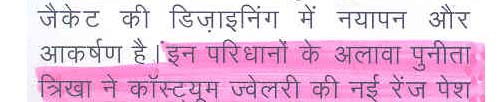 जैकेट की डिज़ाइनिंग में नयापन और
आकर्षण है। इन परिधानों के अलावा पुनीता
त्रिखा ने कॉस्ट्यूम ज्वेलरी की नई रेंज पेश